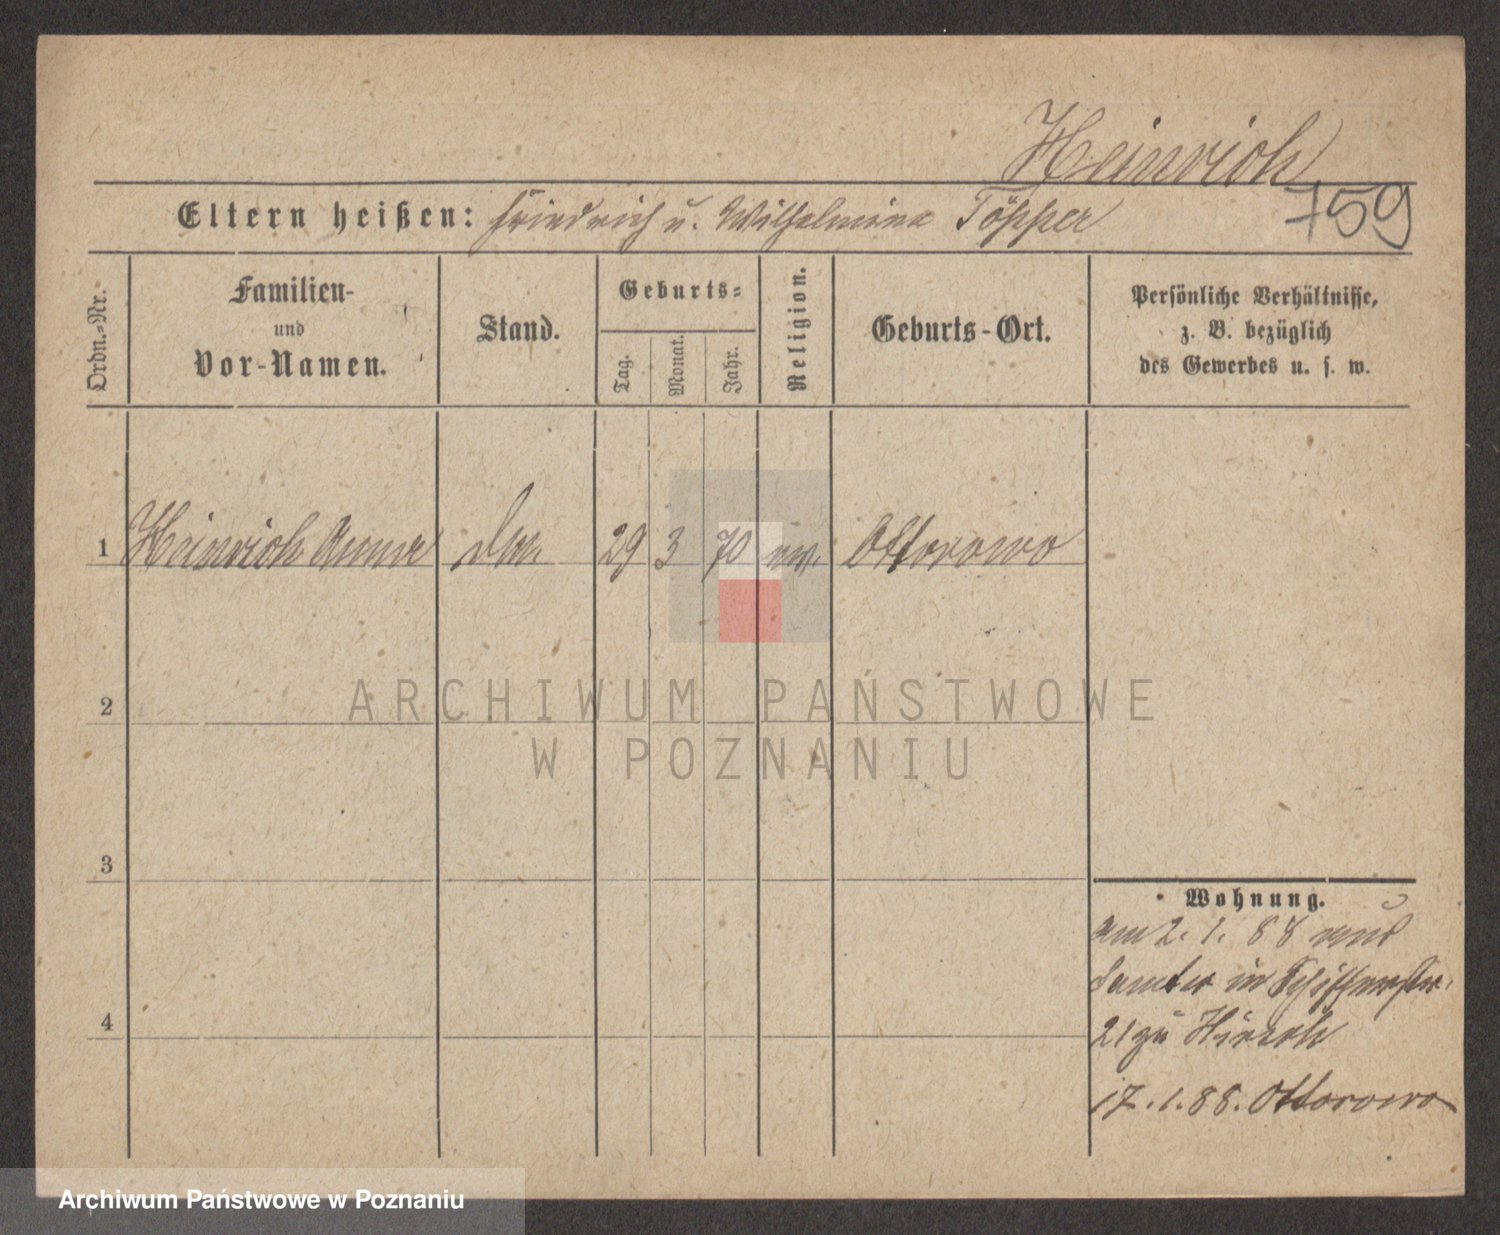 Heinrich
759
Eltern heißen: Friedrich u. Wilhelmine Töpper
Ordn.-Nr.
Familien-
und
Vor-Namen.
Stand.
Geburts-
Tag.
Monat.
Jahr.
Religion.
Geburts-Ort.
Persönliche Verhältnisse,
z. B. bezüglich
des Gewerbes u. s. w.
1 Heinrich Anna 29 3 70 ev. Ottorowo
2
3
4
Wohnung.
am 2. 1. 88 aus
Samter in
21 zu Hirsch
17.1.88. Ottorowo
ARCHIWUM PAŃSTWOWE
W POZNANIU
Archiwum Państwowe w Poznaniu